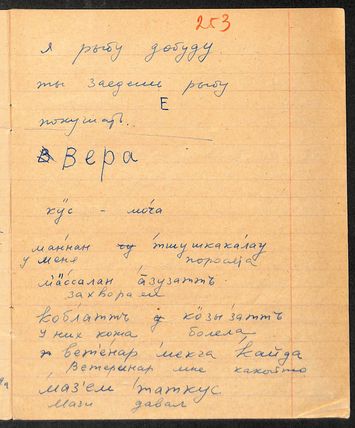 253
я рыбу добуду
ты заедешь рыбу
Е
покушать.
Вера
кӱс - моча
маннан тшушкакалау
у меня поросята
мӓссалан а̄зузаттъ
захворали
коблаттъ кӧзызаттъ
У них кожа болела
ветена́р мекга кайда
Ветеринар мне какойто
маз'ем таткус
Мази давал